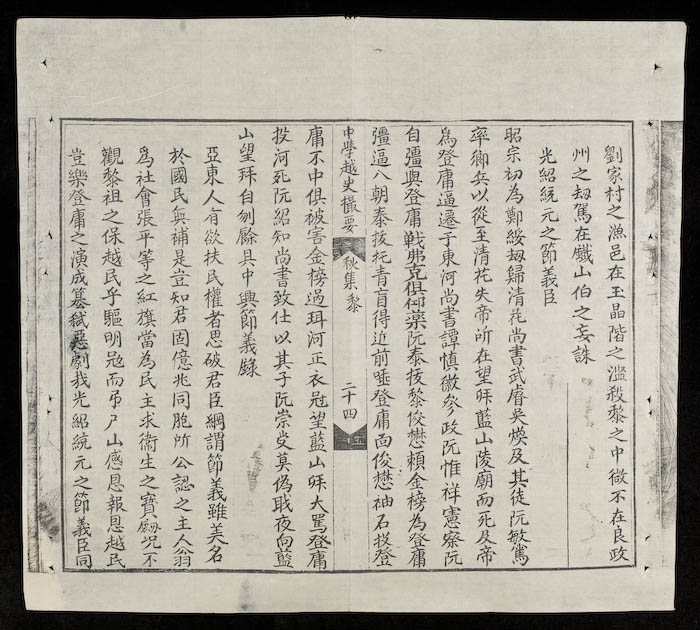 劉家村之漁邑在玉晶階之濫殺黎之中微不在良政
州之刼駕在鐵山伯之妄誅
光紹統元之節義臣
昭宗初為鄭綏刼歸清花尚書武睿吳煥及其徒阮敏篤
率鄉兵以從至清花失帝所在望拜藍山陵廟而死及帝
為登庸逼遷于東河尚書譚慎徽參政阮惟祥憲察阮
自彊與登庸戰弗克俱仰藥阮泰拔黎俊懋賴金榜為登庸
彊逼入朝泰拔托青盲得近前唾登庸面俊懋袖石投登
中學越史撮要 秋集 黎 二十四
庸不中俱被害金榜過珥河正衣冠望藍山拜大罵登庸
投河死阮紹知尚書致仕以其子阮崇受莫偽職夜向藍
山望拜自刎餘具中興節義錄
亞東人有欲扶民權者思破君臣綱謂節義雖美名
於國民無補是豈知君固億兆同胞所公認之主人翁
為社會張平等之紅旗當為民主求衛生之寶劒况不
觀黎祖之保越民乎驅明寇而山感恩報恩越民
豈樂登庸之演成篡弑惡劇哉光紹統元之節義臣同